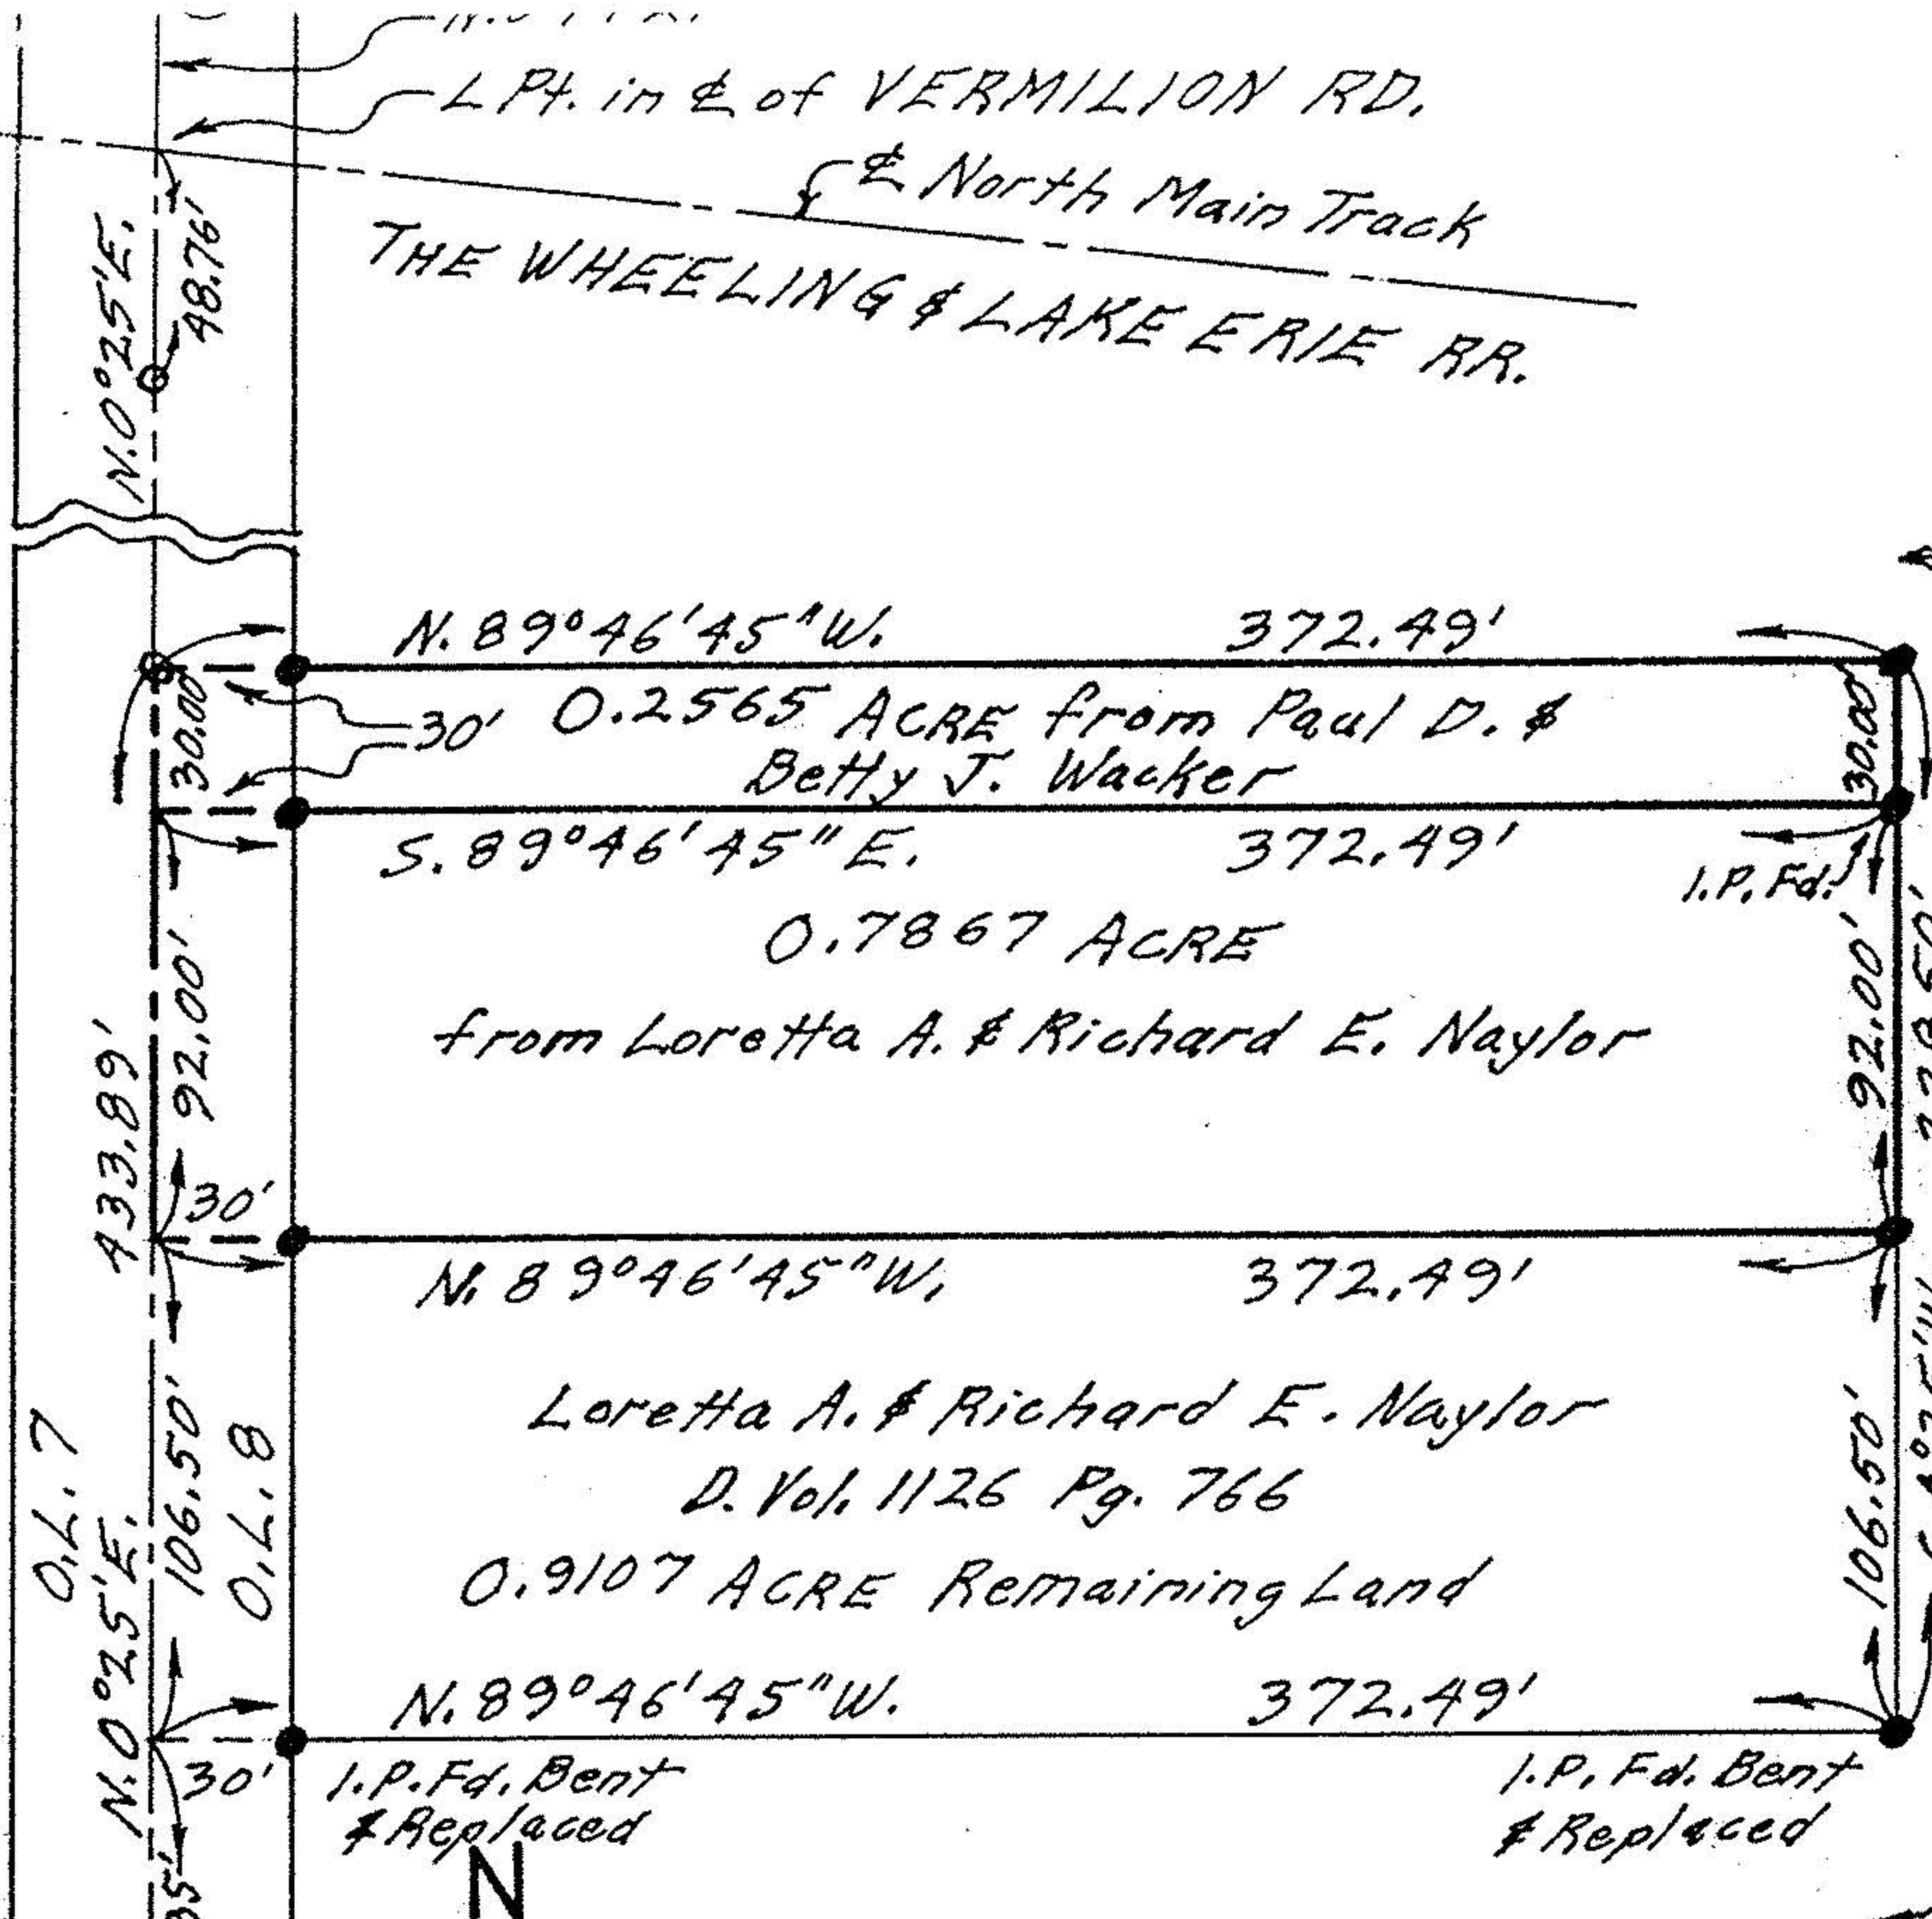 L Pt. in ℄ of VERMILION RD.
℄ North Main Track
THE WHEELING & LAKE ERIE RR.
N.0°25'E.
48.76'
N. 89°46'45"W. 372.49'
30.00'
30'
0.2565 ACRE from Paul D. &
Betty J. Wacker
30.00'
S. 89°46'45" E. 372.49'
I.P. Fd.
0.7867 ACRE
from Loretta A. & Richard E. Naylor
433.89'
92.00'
92.00'
30'
N. 89°46'45"W. 372.49'
Loretta A. & Richard E. Naylor
D. Vol. 1126 Pg. 766
0.9107 ACRE Remaining Land
O.L. 7
N.0°25'E.
106.50'
O.L. 8
106.50'
N. 89°46'45"W. 372.49'
30'
I.P. Fd. Bent
& Replaced
I.P. Fd. Bent
& Replaced
N